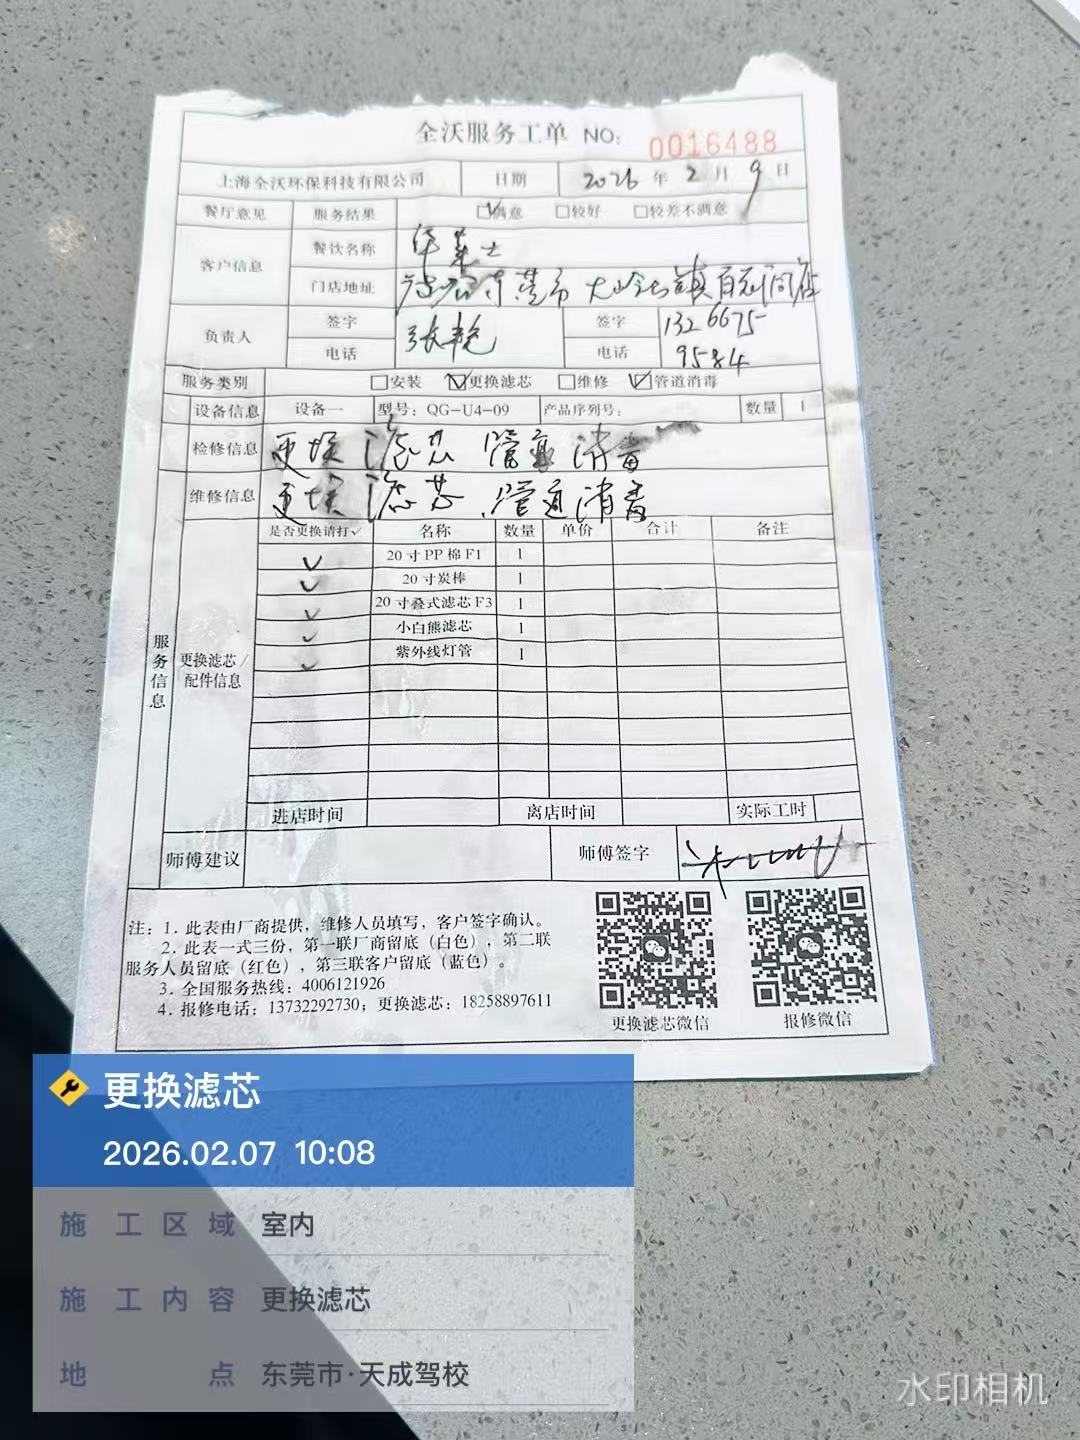 全沃服务工单 NO: 0016488
上海全沃环保科技有限公司 日期 2026 年 2 月 9 日
餐厅意见 服务结果 ☑满意 □较好 □较差不满意
客户信息 餐饮名称 华莱士
门店地址 广东省东莞市 大岭山镇
负责人 签字 张艳 签字 132 6675
电话 电话 9584
服务类别 □安装 ☑更换滤芯 □维修 ☑管道消毒
设备信息 设备一 型号:QG-U4-09 产品序列号: 数量 1
检修信息 更换滤芯 管道消毒
维修信息 更换滤芯、管道消毒
服务信息
更换滤芯/配件信息
是否更换请打✓ 名称 数量 单价 合计 备注
✓ 20寸PP棉F1 1
✓ 20寸炭棒 1
✓ 20寸叠式滤芯F3 1
✓ 小白熊滤芯 1
✓ 紫外线灯管 1
进店时间 离店时间 实际工时
师傅建议 师傅签字
注:1. 此表由厂商提供，维修人员填写，客户签字确认。
2. 此表一式三份，第一联厂商留底（白色），第二联
服务人员留底（红色），第三联客户留底（蓝色）。
3. 全国服务热线：4006121926
4. 报修电话：13732292730；更换滤芯：18258897611
更换滤芯微信 报修微信
更换滤芯
2026.02.07 10:08
施工区域 室内
施工内容 更换滤芯
地点 东莞市·天成驾校
水印相机